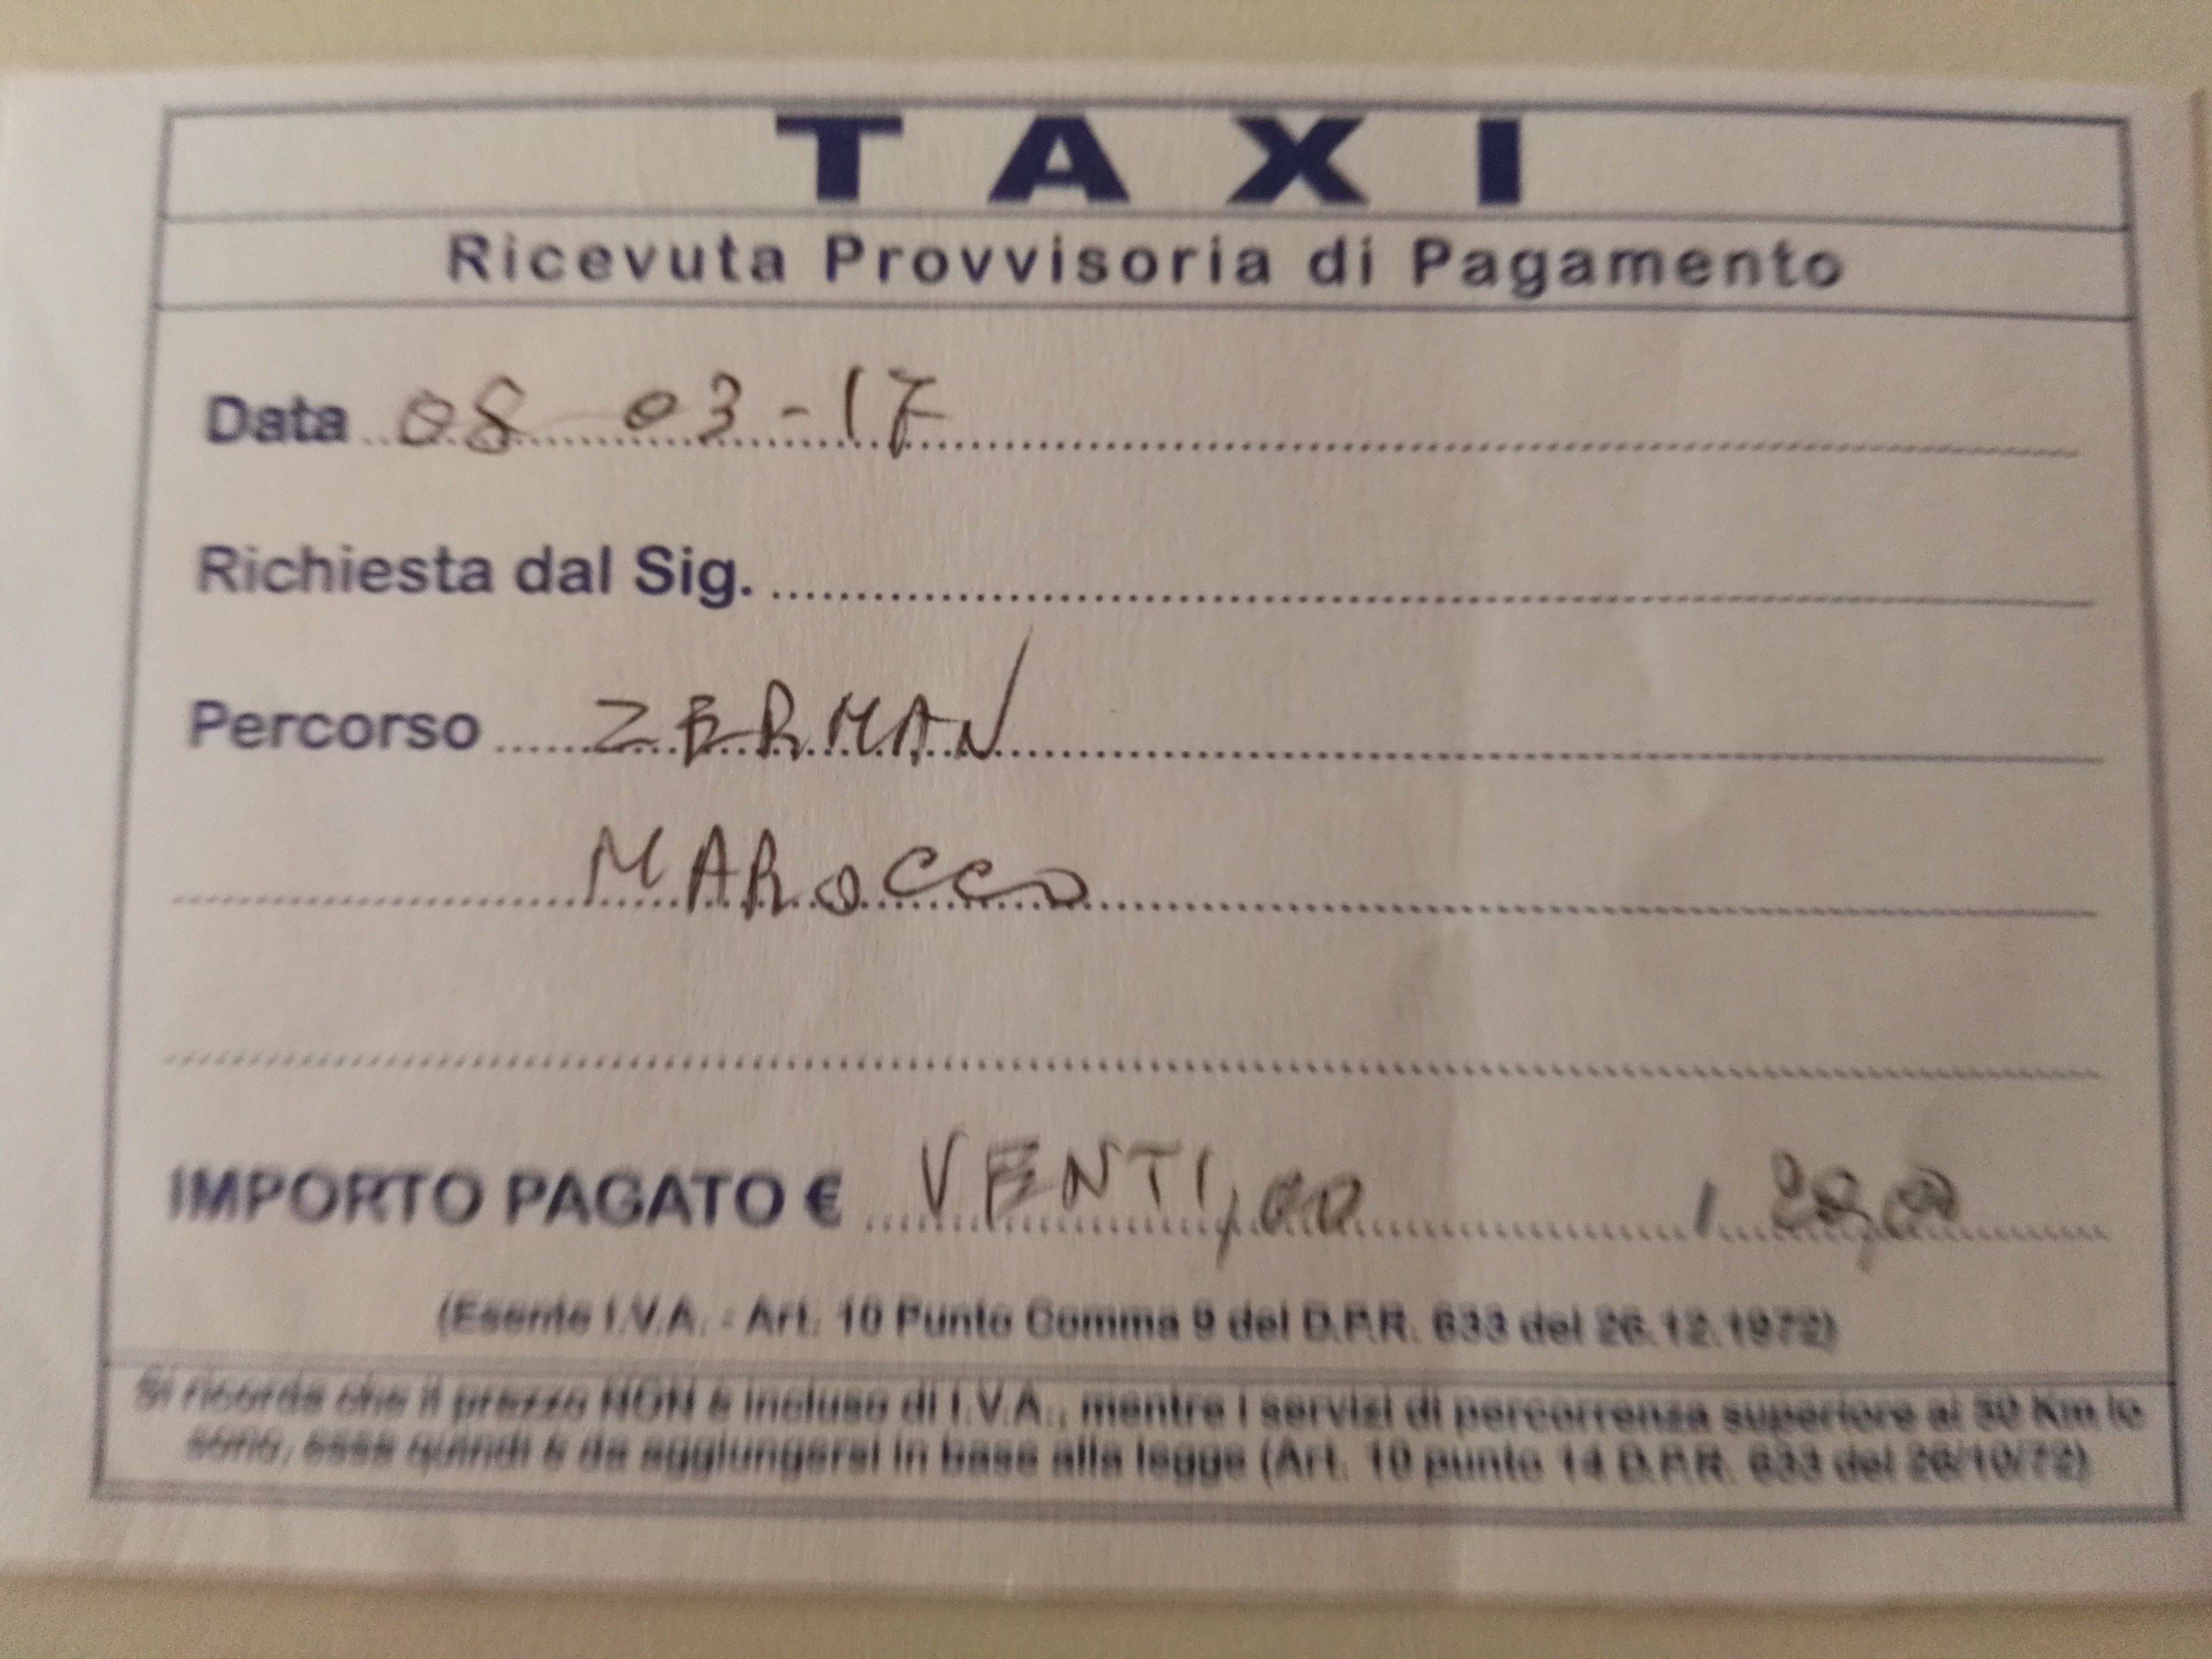 TAXI
Ricevuta Provvisoria di Pagamento
Data 08-03-17
Richiesta dal Sig.
Percorso ZERMAN
MAROCCO
IMPORTO PAGATO € VENTI,00 20,00
(Esente I.V.A. - Art. 10 Punto Comma 9 del D.P.R. 633 del 26.12.1972)
Si ricorda che il prezzo NON è incluso di I.V.A., mentre i servizi di percorrenza superiore ai 50 Km lo
sono, essa quindi è da aggiungersi in base alla legge (Art. 10 punto 14 D.P.R. 633 del 26/10/72)